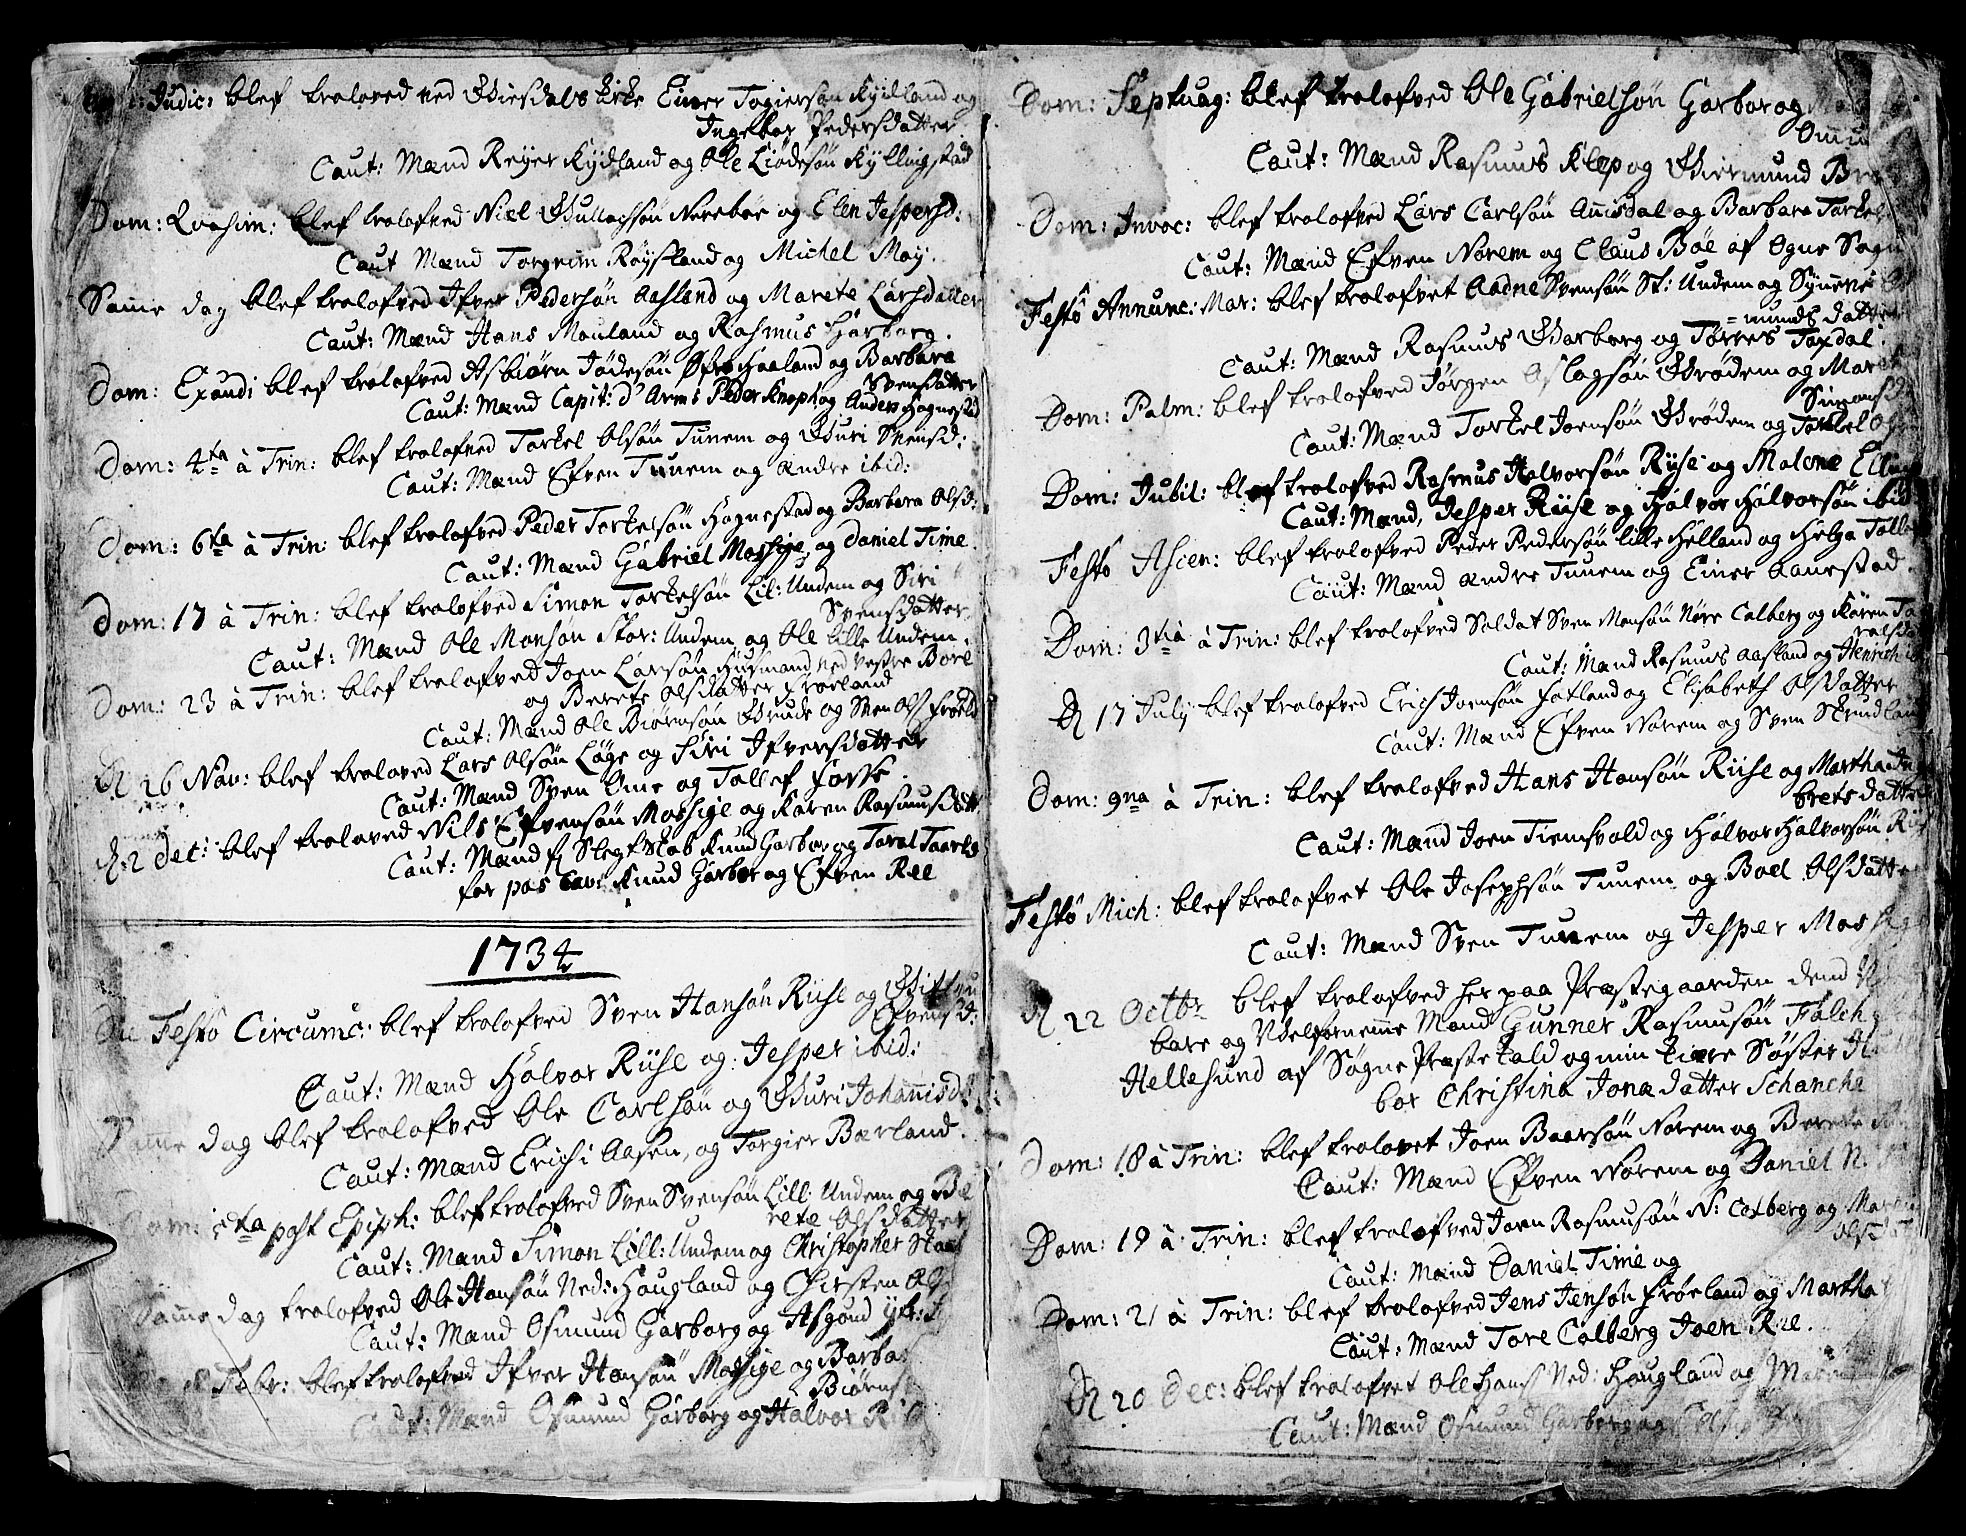 Judic: blef troloved ved Giesdals kirke Einer Togiersøn Kydland og
Ingebor Pedersdatter
Caut: Mænd Reyer Kydland og Ole Liødesøn Kyllingstad
Dom: Qvasim: blef trolofved Niel Gullachsøn Nerebøe og Elen Jespersd:
Caut Mænd Torgrim Röysland og Michel Moy.
Samme dag blef trolofved Ifver Pedersøn Aasland og Marete Larsdatter
Caut: Mænd Hans Mouland og Rasmus Hørborg.
Dom: Exaudi blef trolofved Asbiørn Jødesøn Øfre Haaland og Barbara
Svensdatter
Caut: Mænd Capit: d' Arms Peder Knoph og Anders Hognestad
Dom: 4ta à Trin: blef trolofved Torkel Olsøn Tunem og Guri Svensd:
Caut: Mænd Efven Tunem og Andre ibid:
Dom: 6ta à Trin: blef trolofved Peder Torkelsøn Hognestad og Barbara Olsd:
Caut: Mænd Gabriel Mossige og Daniel Time.
Dom: 17 à Trin: blef trolofved Simon Torkelsøn Lil: Undem og Siri
Svensdatter.
Caut: Mænd Ole Monsøn Stor: Undem og Ole lille Undem.
Dom: 23 à Trin: blef trolofved Joen Larsøn Huusmand ved vestre Bore
og Berete Olsdatter Frøeland
Caut: Mænd Ole Biørnsøn Grude og Sven Ols Frøeld
D 26 Nov: blef troloved Lars Olsøn Løge og Siri Ifversdatter
Caut: Mænd Sven Ome og Tollef Fosse.
D: 2 Dec: blef troloved Nils Efvensøn Mossige og Karen Rasmusdatt
Caut: Mænd for Slegtskab Knud Garbor og Taral Taarla
for pas Cav: Knud Garbor og Efven Ree
1734
Die Festô Circumc: blef trolofved Sven Hansøn Riise og Gitlou
Efvensd:
Caut: Mænd Halvor Riise og Jesper ibid:
Samme dag blef trolofved Ole Carlsøn og Guri Johannisd
Caut: Mænd Erich i Aasen, og Torgier Børland.
Dom: 5ta post Epiph: blef trolofved Sven Svensøn Lill: Undem og Be
rete Olsdatter
Caut: Mænd Simon Lill: Undem og Christopher
Samme dag trolofved Ole Hansøn Ned: Haugland og Chirsten Ols
Caut: Mænd Osmund Garborg og Asgoud
Febr: blef trolofved Ifver Hansøn Mossige og Barba
Biørns
Caut: Mænd Osmund Garborg og Halvor Ri
Dom: Septuag: blef trolofved Ole Gabrielsøn Garbor og
Caut: Mænd Rasmus Klep og Giermund
Dom: Invoc: blef trolofved Lars Carlsøn Anisdal og Barbara Torkel
Caut: Mænd Efven Norem og Claus Bøe af Ogne Sogn
Festô Annunc: Mar: blef trolofvet Aadne Svensøn St: Undem og Synnene
=munds datter
Caut: Mænd Rasmus Garborg og Tørres Taxdal.
Dom: Palm: blef trolofved Jørgen Aslagsøn Grødem og Maret
Simonsd
Caut: Mænd Torkel Joensøn Grødem og Torkel
Dom: Jubil: blef trolofved Rasmus Halvorsøn Riise og Malene
Caut: Mænd, Jesper Riise og Halvor Halvorsøn ibid
Festô Ascen: blef trolofved Peder Pedersøn lille Helland og Helga
Caut: Mænd Andre Tunem og Einer Aanestad.
Dom: 3tia à Trin: blef trolofved Soldat Sven Monsøn Nøre Calberg og Karen
Caut: Mænd Rasmus Aasland og Henrich
D 17 July blef trolofved Erich Joensøn Fotland og Elisabeth Olsdatter
Caut: Mænd Efven Norem og Sven Skrudland
Dom: 9na à Trin: blef trolofved Hans Hansøn Riise og Martha
brets datter
Caut: Mænd Joen Tiemsvold og Halvor Halvorsøn
Festô Mich: blef trolofvet Ole Josephsøn Tunem og Boel Olsdatter
Caut: Mænd Sven Tunem og Jesper Mossige
D 22 Octbr blef trolofved her paa Præstegaarden dend
bare og Velfornemme Mand Gunner Rasmusøn Falch
Hellesund af Søgne Præstekald og min kiære Søster
bor Christina Jonædatter Schanche
Dom: 18 à Trin: blef trolovet Joen Baarsøn Norem og Berete
Caut: Mænd Efven Norem og Daniel N.
Dom: 19 à Trin: blef trolofved Joen Rasmusøn N: Calberg og Maren
Olsd
Caut: Mænd Daniel Time og
Dom: 21 à Trin: blef trolofved Jens Jensøn Frøeland og Martha
Caut: Mænd Tore Calberg Joen Ree.
D 20 Dec: blef trolofvet Ole Hans Ned: Haugland og
Caut: Mænd Osmund Garborg og